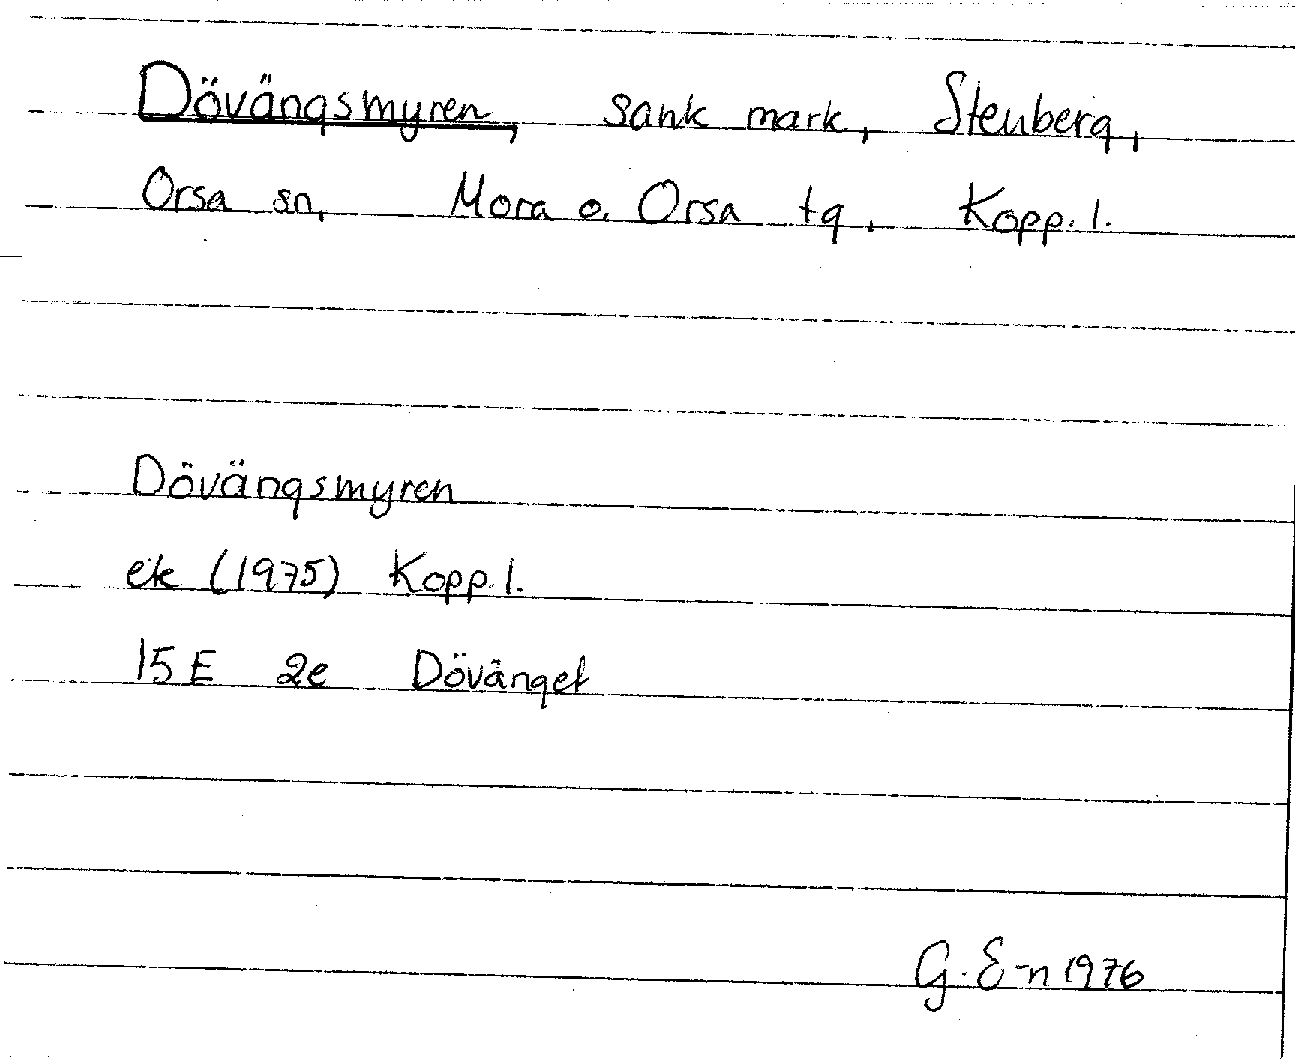 Dövängsmyren, sank mark, Stenberg,
Orsa sn, Mora o. Orsa tg, Kopp. l.
Dövängsmyren
ek (1975) Kopp. l.
15 E 2e Dövänget
G. E-n 1976